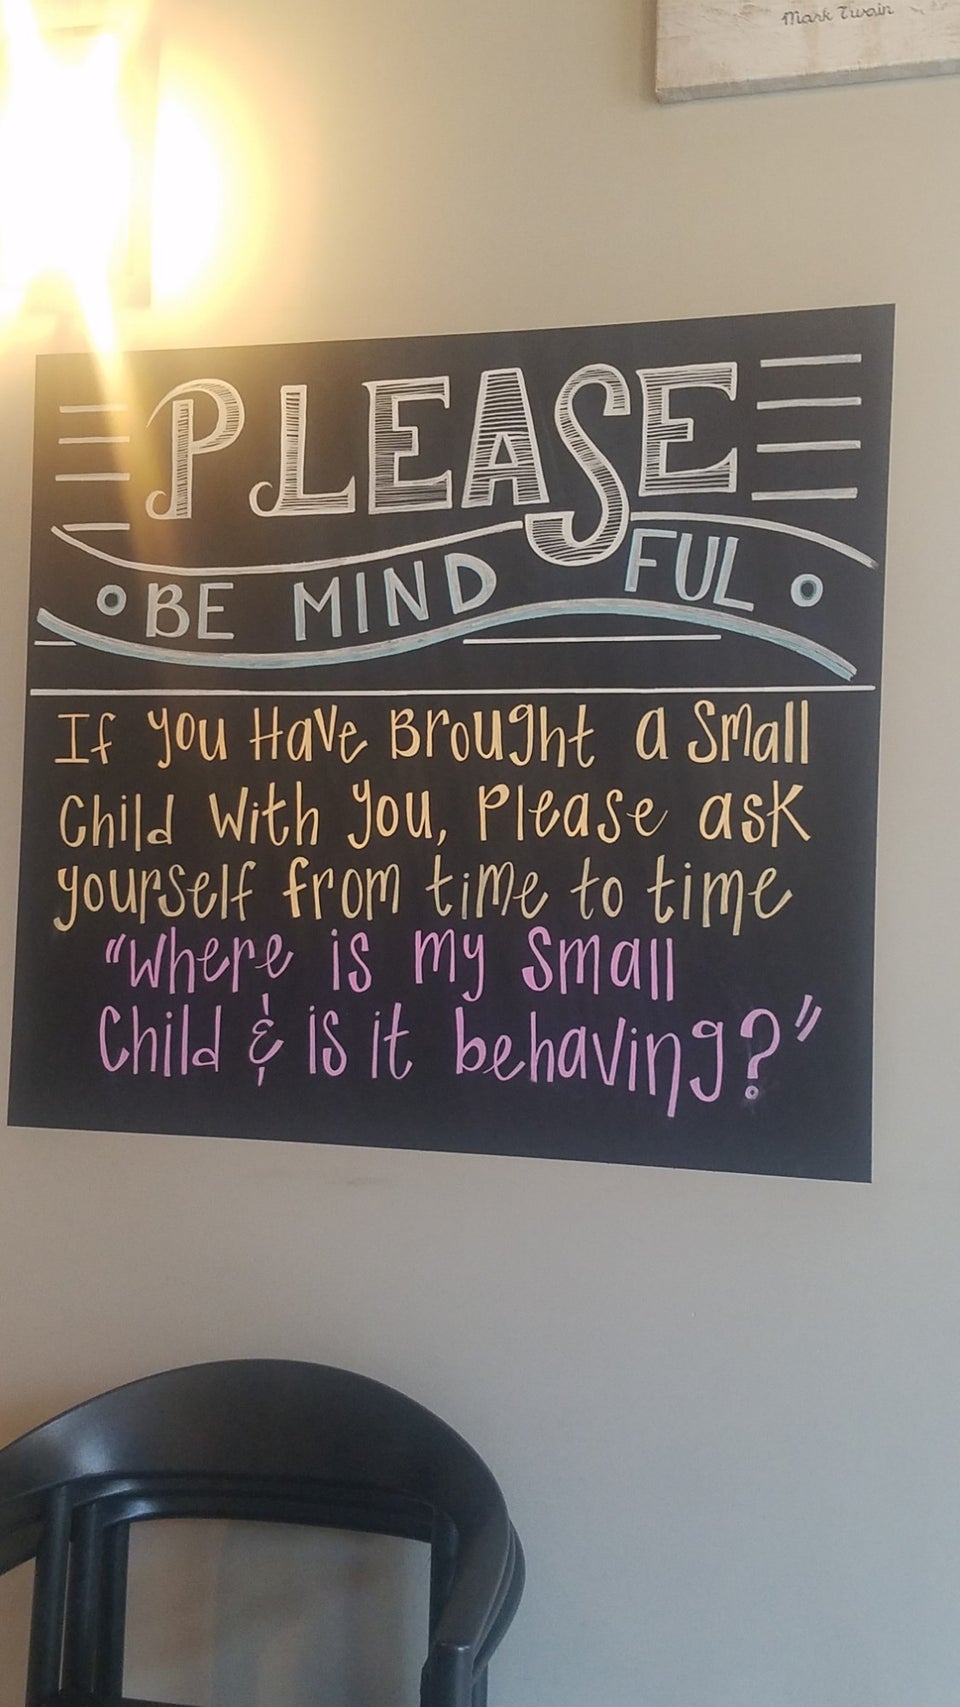 Mark Twain
PLEASE
BE MIND FUL
If you Have Brought a Small
Child With you, Please ask
yourself from time to time
"Where is my Small
Child & is it behaving?"